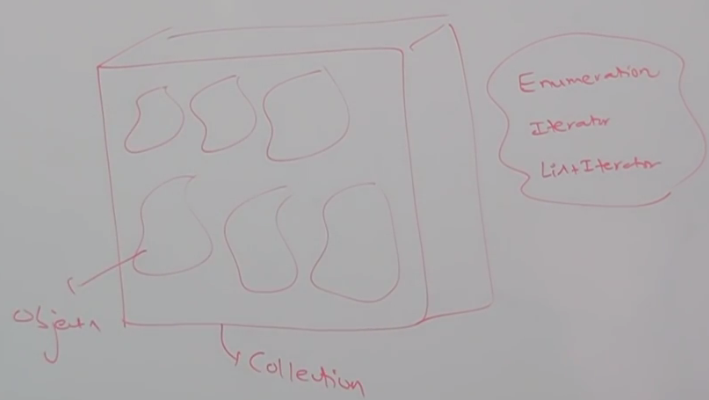 Enumeration
Iterator
ListIterator
Objects
Collection